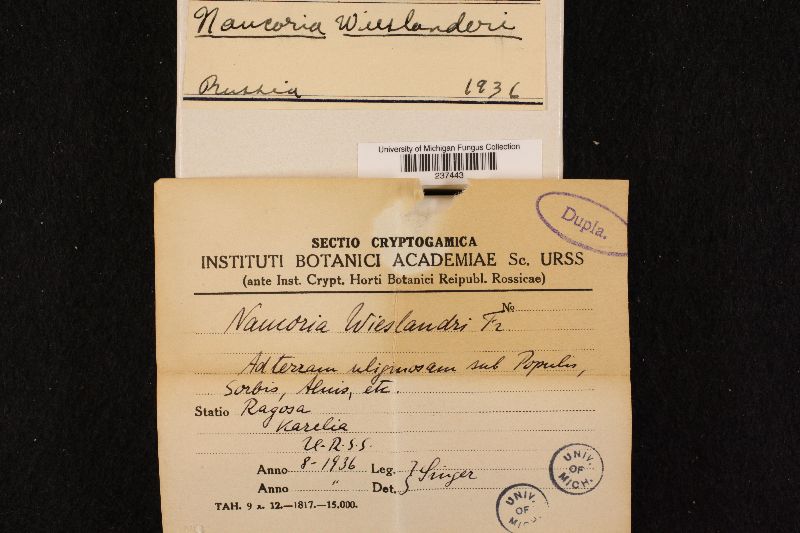 Naucoria Wieslanderi
Russia 1936
University of Michigan Fungus Collection
237443
Dupla.
SECTIO CRYPTOGAMICA
INSTITUTI BOTANICI ACADEMIAE Sc. URSS
(ante Inst. Crypt. Horti Botanici Reipubl. Rossicae)
№
Naucoria Wieslandri Fr.
Ad terram uliginosam sub Populis,
Sorbis, Alnis, etc.
Statio Ragosa
Karelia
U.R.S.S.
Anno 8-1936 Leg. } Singer
Anno " Det.
TAH. 9 x. 12.—1817.—15.000.
UNIV. OF MICH.
UNIV. OF MICH.